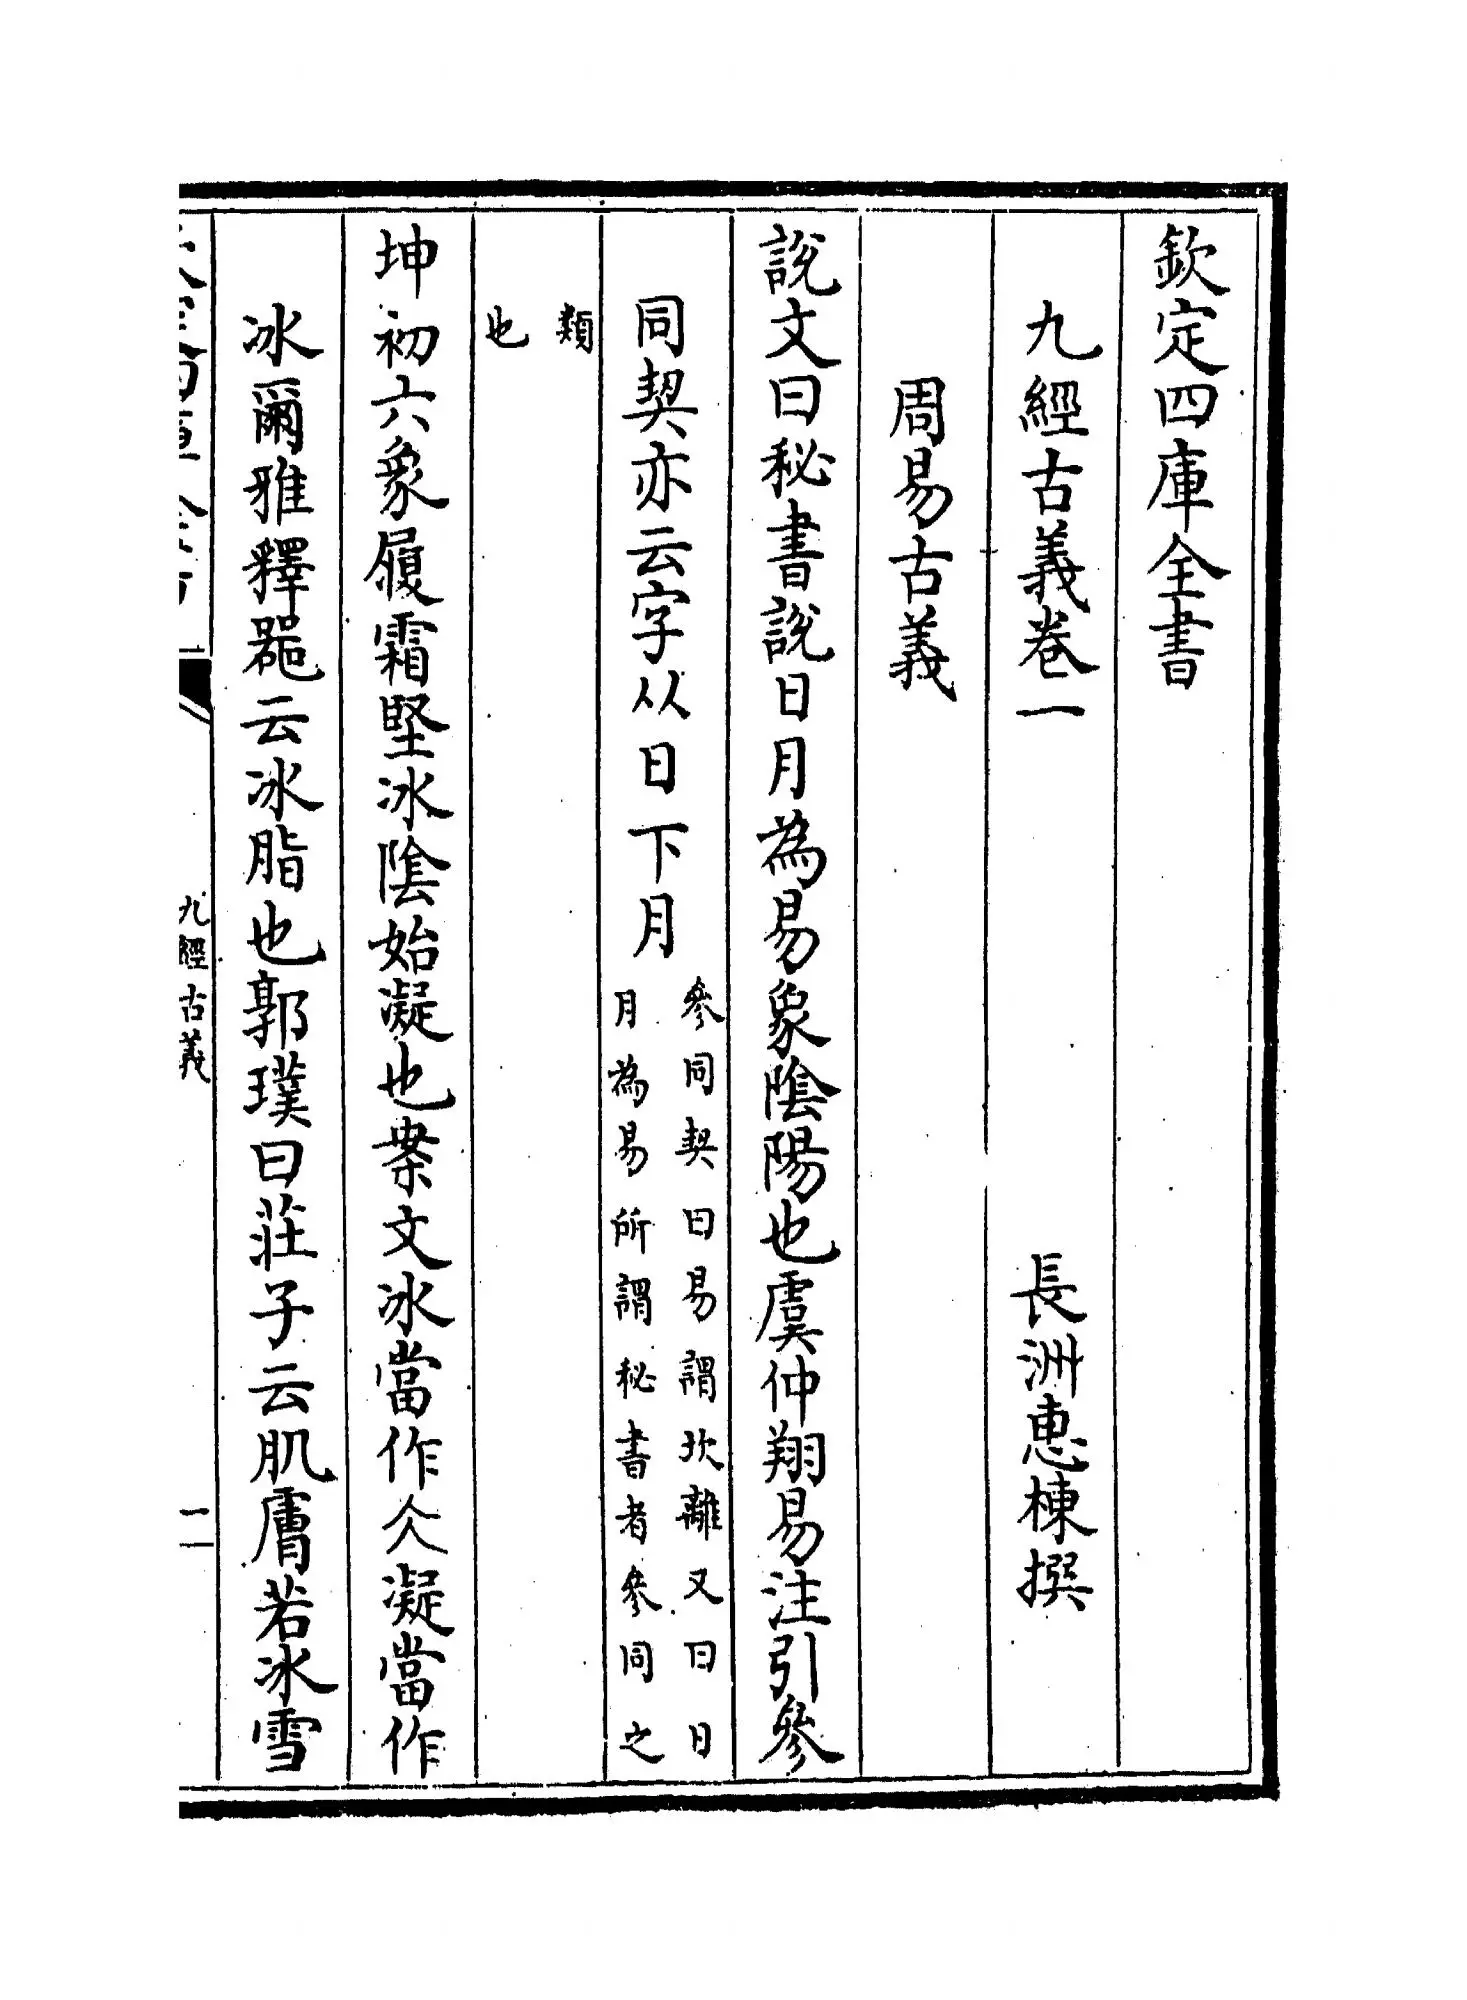 欽定四庫全書
九經古義卷一
長洲惠棟撰
周易古義
說文曰秘書說日月為易象隂陽也虞仲翔易注引參
同契亦云字从日下月
參同契曰易謂坎離又曰日
月為易所謂秘書者參同之
類
也
坤初六象履霜堅冰隂始凝也案文冰當作仌凝當作
冰爾雅釋器云冰脂也郭璞曰莊子云肌膚若冰雪
九經古義
一